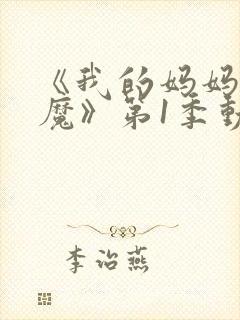 《我的妈妈
魔》第1季動
李诒燕